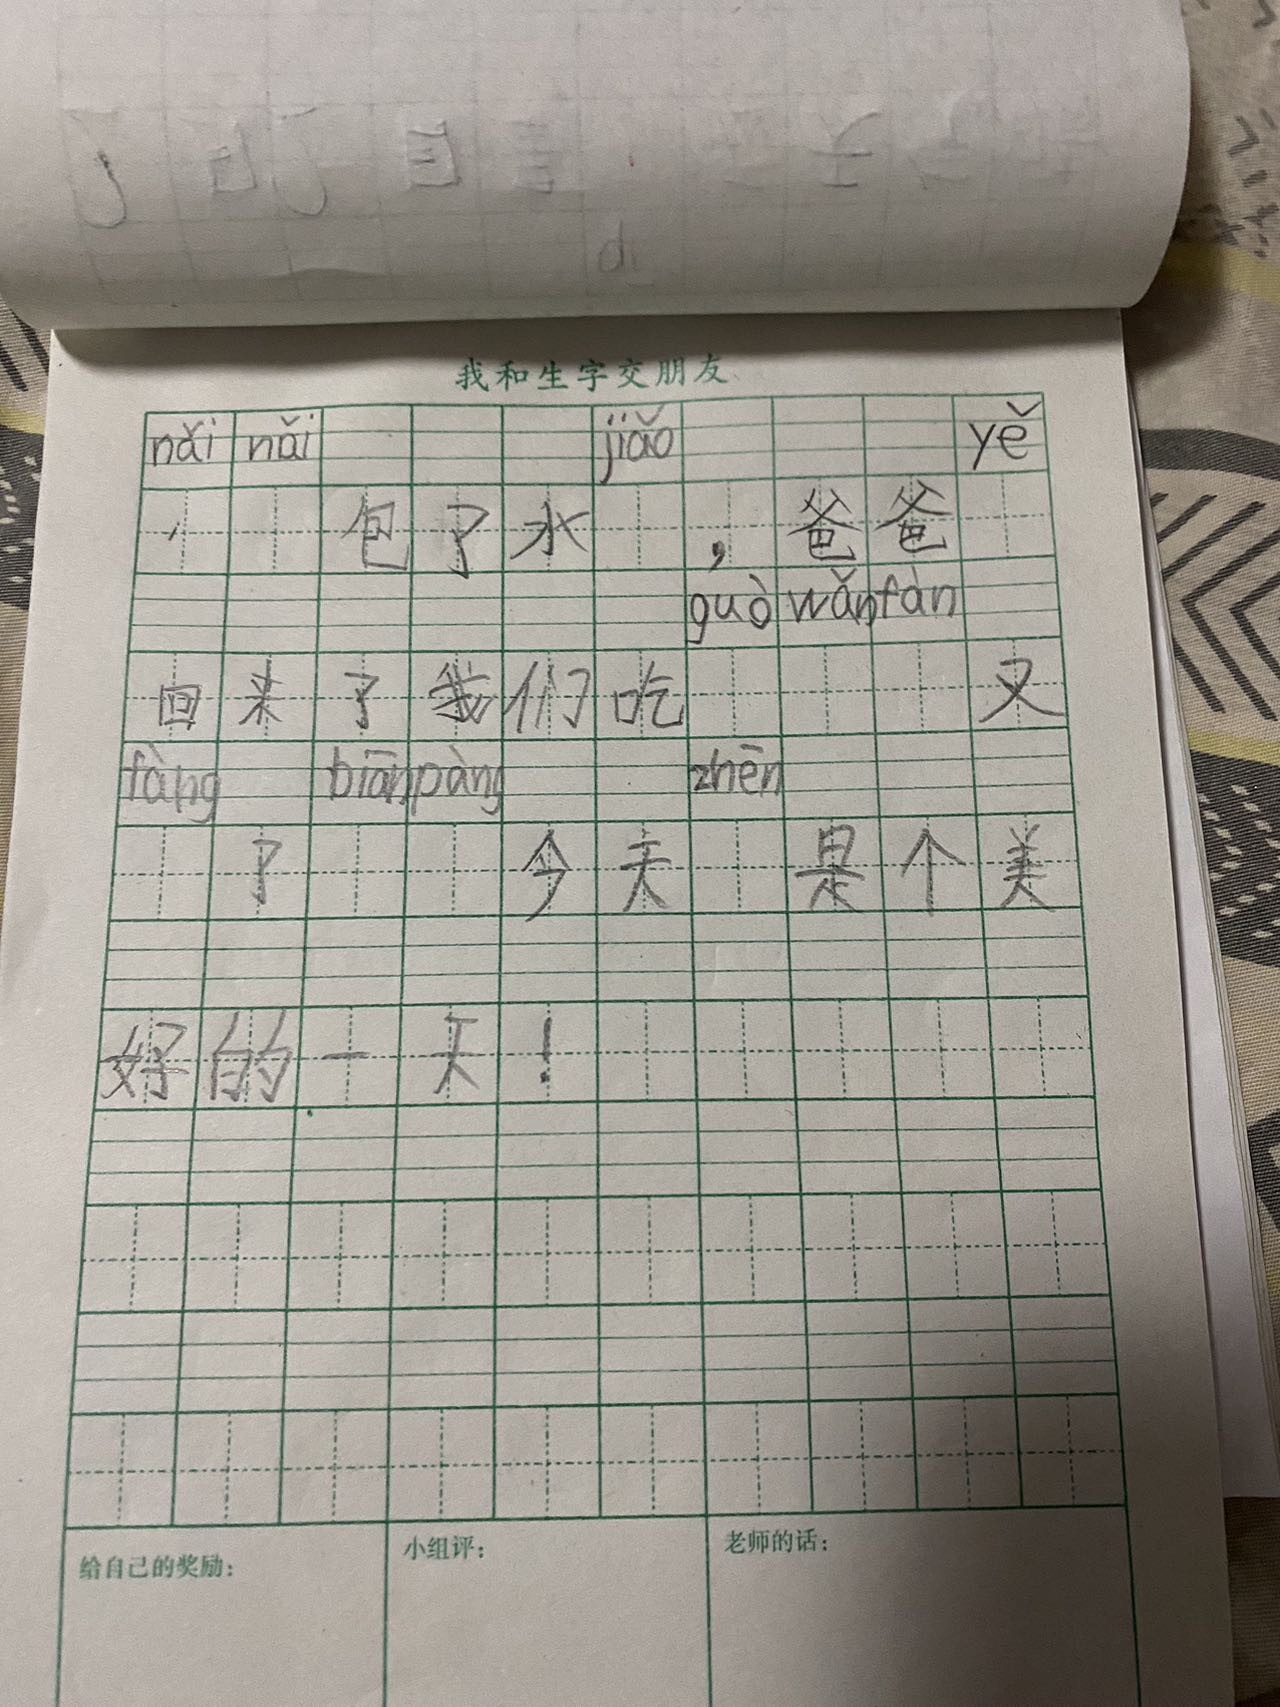 我和生字交朋友
nǎi nǎi jiǎo yě
包了水，爸爸
guò wǎn fàn
回来了我们吃又
fàng biān pàng zhēn
了今天是个美
好的一天！
给自己的奖励：
小组评：
老师的话：